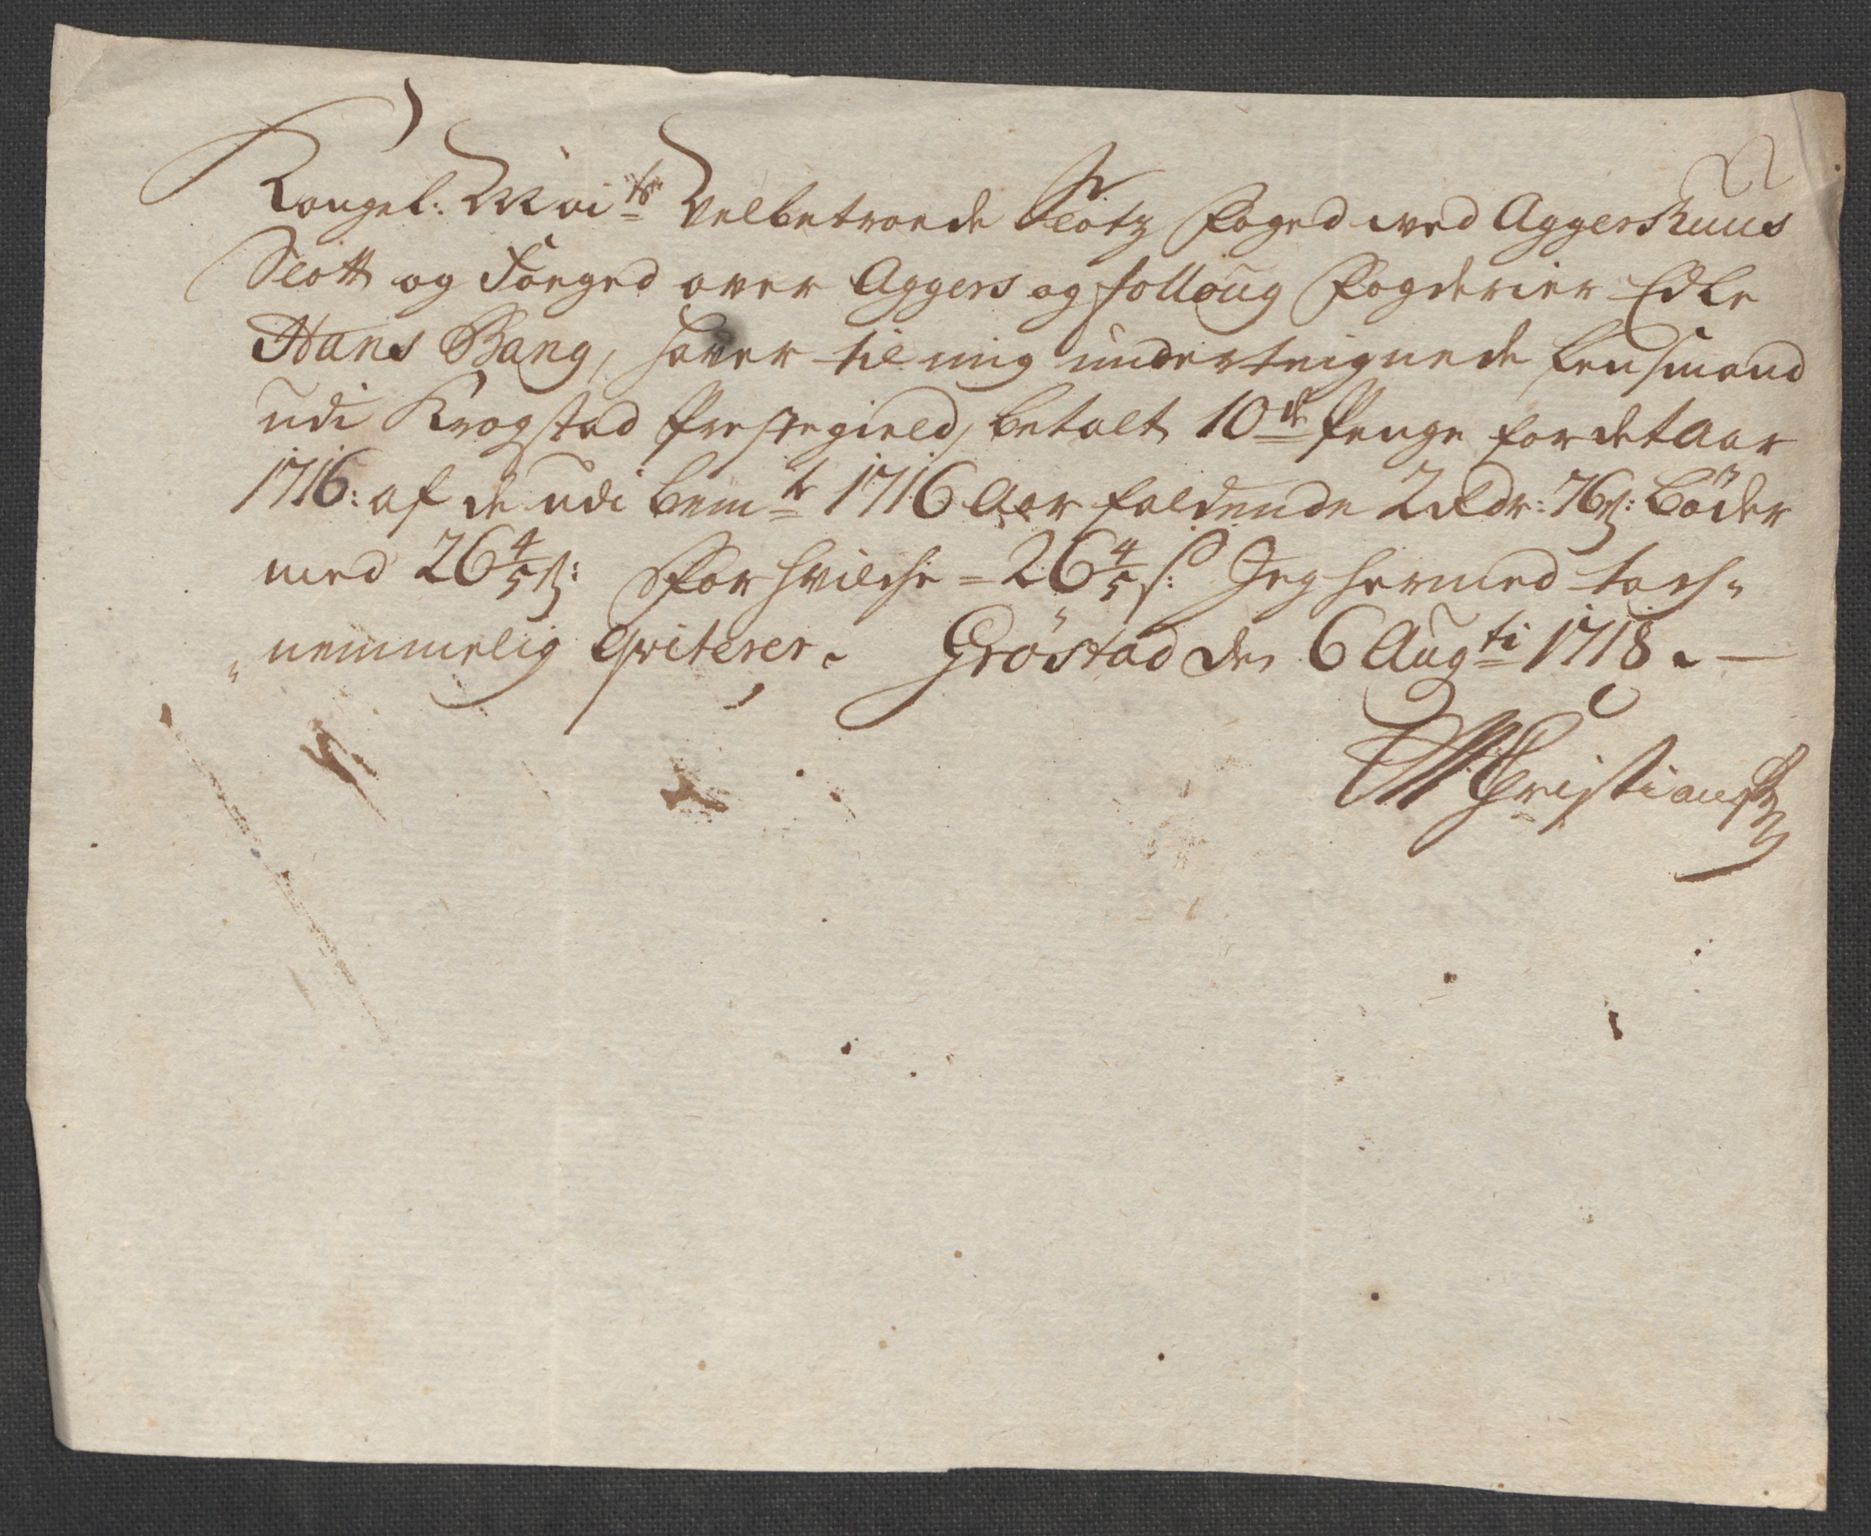 Kongel: Maits Velbetroede Slotz Foged ved Aggershuus
Slott og Foeged over Aggers og follong Fogderier Edle
Hans Bang, haver til mig underteignede Lensmand
udi Krogstad Prestegield, betalt 10de Penge for det Aar
1716: af de udi bemte 1716 Aar faldende 2 Rdr: 76 ß: Bøder
med 26 4/5 ß: For hvilche = 26 4/5 ß: Jeg hermed tach-
nemmelig qviterer. Grøstad den 6 Augti 1718. —
Christians